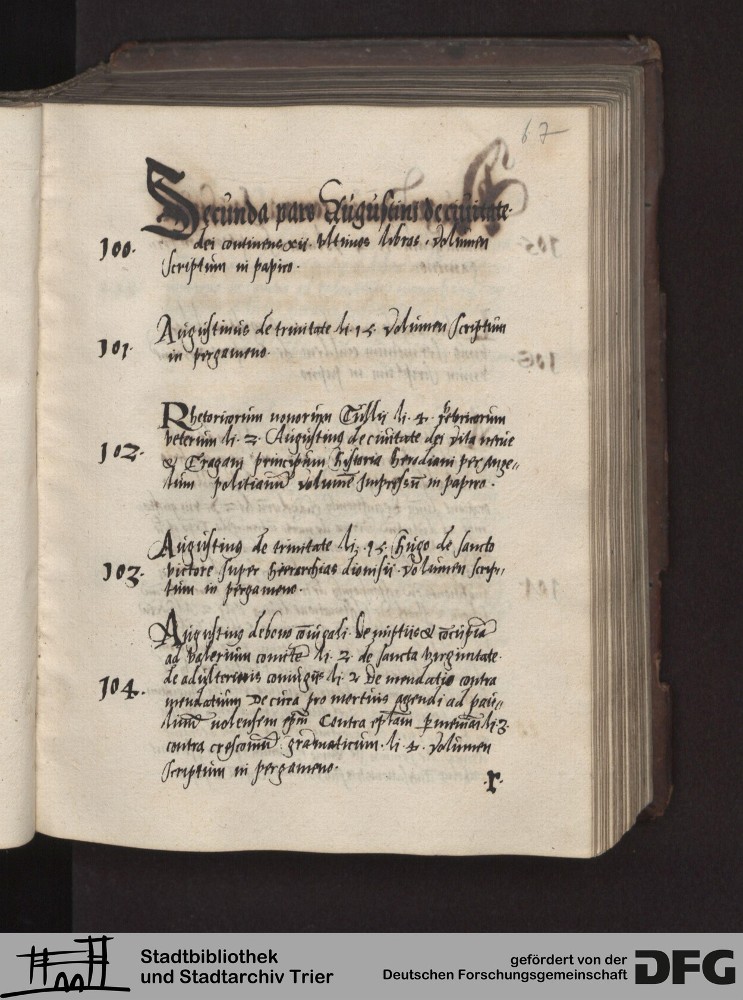 67
Secunda pars Augustini de ciuitate
100. dei continens xii. Vltimos libros. Volumen
scriptum in papiro.
Augustinus de trinitate li. 15. Volumen scriptum
101. in pergameno.
Rhetoricorum nouorum Tullii li. 4. Rethoricorum
veterum li. 2. Augustinus de ciuitate dei
102.
principum historia herodiani per Ange-
lum politianum volumen Impressum in papiro.
Augustinus de trinitate li. 15. hugo de sancto
103. victore super hierarchias dionisii. Volumen scrip-
tum in pergameno.
Augustinus de bono coniugali. De nuptiis et
ad Valerium comitem li. 2. de sancta virginitate.
de adulterinis coniugiis li. 2 De mendatio contra
104. mendatium De cura pro mortuis agendi ad pau-
linum nolensem epm Contra eplam li. 3.
contra cresconium gramaticum. li. 4. Volumen
scriptum in pergameno.
r.
Stadtbibliothek
und Stadtarchiv Trier
gefördert von der
Deutschen Forschungsgemeinschaft
DFG